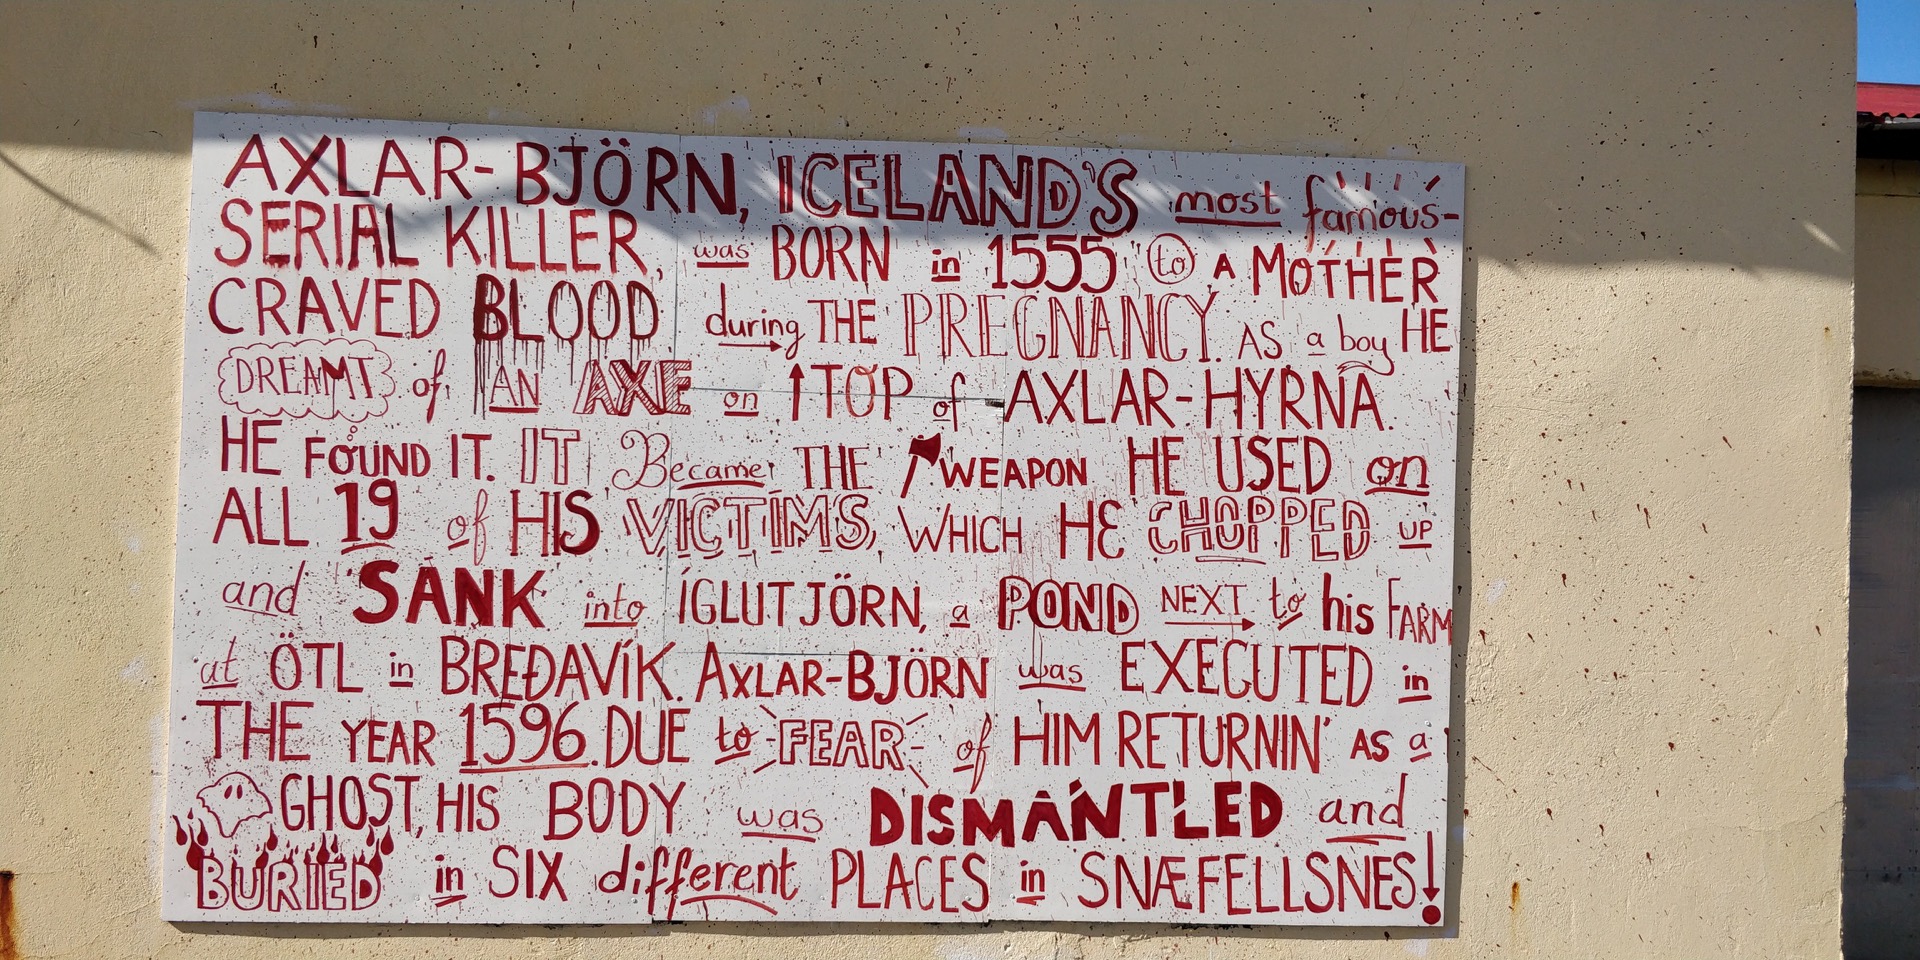 AXLAR-BJÖRN, ICELAND'S most famous-
SERIAL KILLER, was BORN in 1555 to A MOTHER
CRAVED BLOOD during THE PREGNANCY. AS a boy HE
DREAMT of AN AXE on TOP of AXLAR-HYRNA.
HE FOUND IT. IT Became THE WEAPON HE USED on
ALL 19 of HIS VICTIMS, WHICH HE CHOPPED UP
and SANK into ÍGLUTJÖRN, a POND NEXT to his FARM
at ÖTL in BREÐAVÍK. AXLAR-BJÖRN was EXECUTED in
THE YEAR 1596. DUE to FEAR of HIM RETURNIN' AS a
GHOST, HIS BODY was DISMANTLED and
BURIED in SIX different PLACES in SNÆFELLSNES!